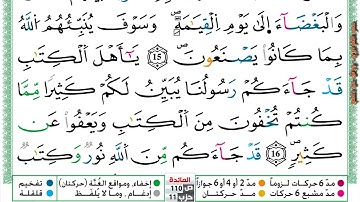 وَالْبَغْضَآءَ اِلَىٰ يَوْمِ الْقِيَٰمَةِۖ وَسَوْفَ يُنَبِّئُهُمُ اللَّهُ
بِمَا كَانُواْ يَصْنَعُونَۖ 15 يَٰٓأَهْلَ الْكِتَٰبِ
قَدْ جَآءَكُمْ رَسُولُنَا يُبَيِّنُ لَكُمْ كَثِيرًا مِّمَّا
كُنتُمْ تُخْفُونَ مِنَ الْكِتَٰبِ وَيَعْفُواْ عَن
كَثِيرٍۖ 16 قَدْ جَآءَكُم مِّنَ اللَّهِ نُورٌ وَكِتَٰبٌ
مدّ 6 حركات لزوماً مدّ 2 أو 4 أو 6 جوازاً
مدّ مشبع 6 حركات مدّ حركتان
المائدة
ص 110
حزب 11
إخفاء، ومواقع الغُنَّة (حركتان) تفخيم
إدغام، وما لا يُلفَظ قلقلة